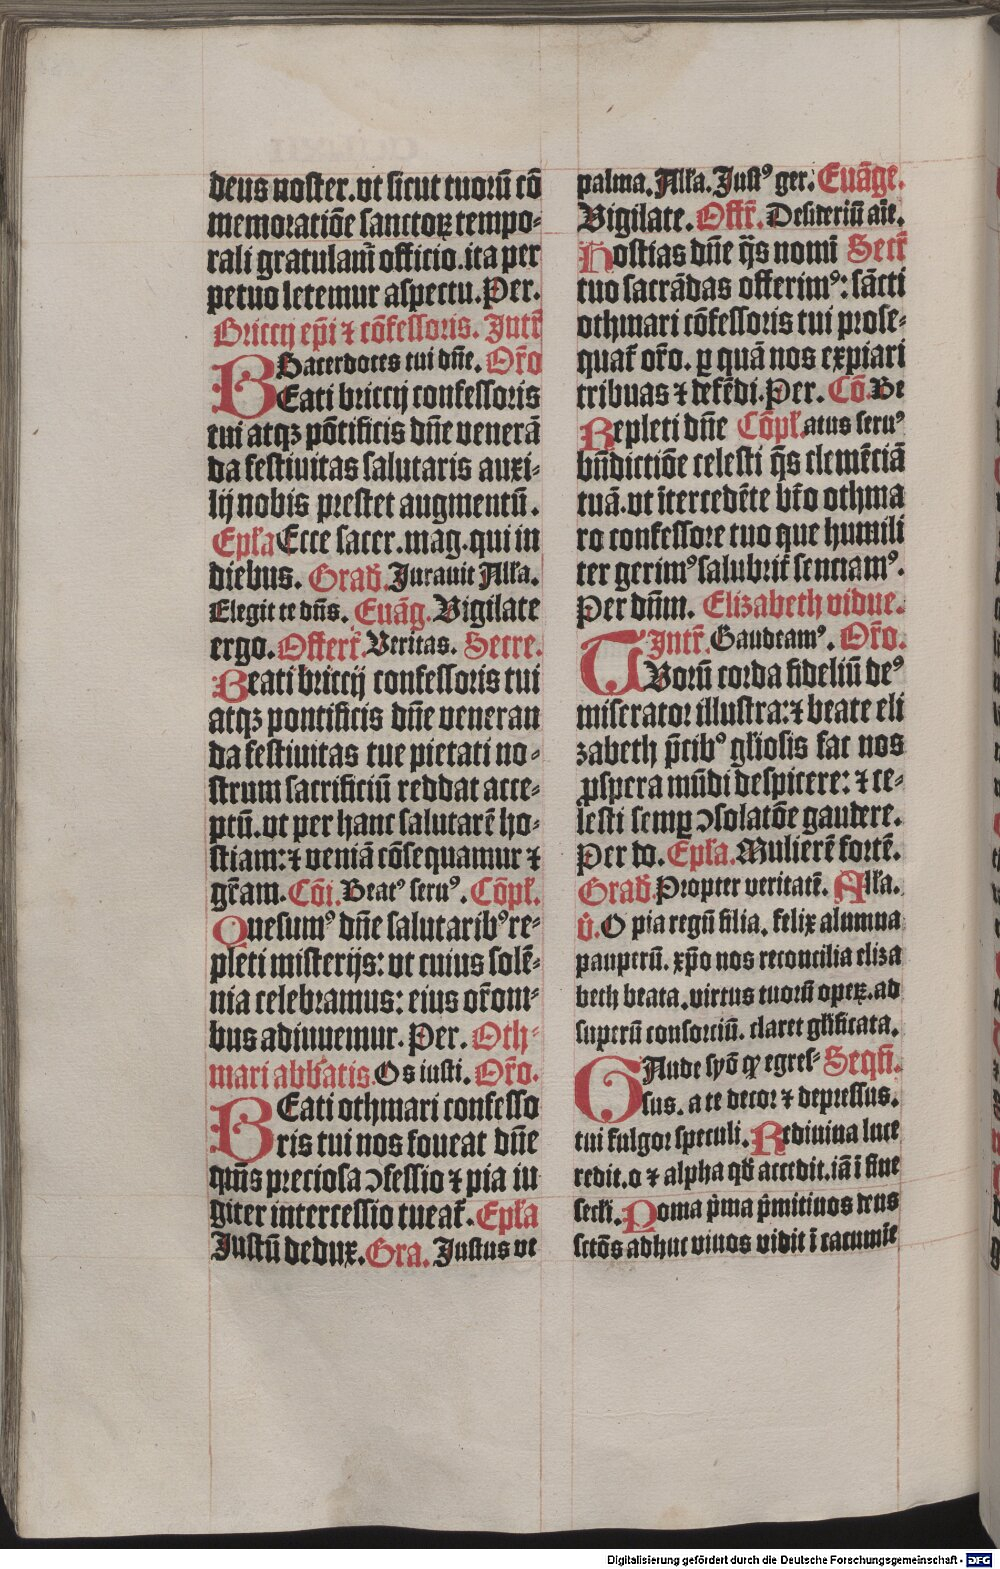 deus noster. vt sicut tuorū cō
memoratiōe sanctoꝝ tempo-
rali gratulam̄ officio. ita per
petuo letemur aspectu. Per.
Briccij ep̄i ⁊ cōfessoris. Intr̄
Sacerdotes tui dn̄e. Or̄o
BEati briccij confessoris
tui atqꝫ pōtificis dn̄e venerā
da festiuitas salutaris auxi-
lij nobis prestet augmentū.
Ep̄la Ecce sacer. mag. qui in
diebus. Grad̄. Jurauit All̄a.
Elegit te dn̄s. Euāg. Vigilate
ergo. Offert̄. Veritas. Secre.
Beati briccij confessoris tui
atqꝫ pontificis dn̄e veneran
da festiuitas tue pietati no-
strum sacrificiū reddat acce-
ptū. vt per hanc salutarē ho-
stiam: ⁊ veniā cōsequamur ⁊
gr̄am. Cōi. Beatꝰ seruꝰ. Cōpl̄.
Quesumꝰ dn̄e salutaribꝰ re-
pleti misterijs: vt cuius solē-
nia celebramus: eius or̄om-
bus adiuuemur. Per. Oth-
mari abb̄atis. Os iusti. Or̄o.
BEati othmari confesso
ris tui nos foueat dn̄e
qm̄s preciosa ↄfessio ⁊ pia iu
giter intercessio tueat̄. Ep̄la
Justū dedux. Gra. Justus vt
palma. All̄a. Justꝰ ger. Euāge.
Vigilate. Offr̄. Desideriū aīe.
Hostias dn̄e q̄s nomī Secr̄
tuo sacrādas offerimꝰ: sācti
othmari cōfessoris tui prose-
quat̄ or̄o. ꝑ quā nos expiari
tribuas ⁊ defēdi. Per. Cō. Be
Repleti dn̄e Cōpl̄. atus seruꝰ
bn̄dictiōe celesti q̄s clemēciā
tuā. vt ītercedēte bt̄o othma
ro confessore tuo que humili
ter gerimꝰ salubrit̄ senciamꝰ.
Per dn̄m. Elizabeth vidue.
Intr̄. Gaudeamꝰ. Or̄o.
TVorū corda fideliū deꝰ
miserator illustra: ⁊ beate eli
zabeth p̄cibꝰ gl̄iosis fac nos
ꝓspera mūdi despicere: ⁊ ce-
lesti semꝑ ↄsolatōe gaudere.
Per do. Ep̄la. Mulierē fortē.
Grad̄. Propter veritatē. All̄a.
v̄. O pia regū filia. felix alumna
pauperū. xp̄o nos reconcilia eliza
beth beata. virtus tuorū operꝝ. ad
superū consorciū. claret gl̄ificata.
GAude syō ꝙ egres- Seqn̄.
sus. a te decor ⁊ depressus.
tui fulgor speculi. Rediuiua luce
redit. o ⁊ alpha qd̄ accedit. iā ī fine
seclī. Noma p̄ma p̄mitiuos deus
sctōs adhuc viuos vidit ī cacumīe
Digitalisierung gefördert durch die Deutsche Forschungsgemeinschaft - DFG